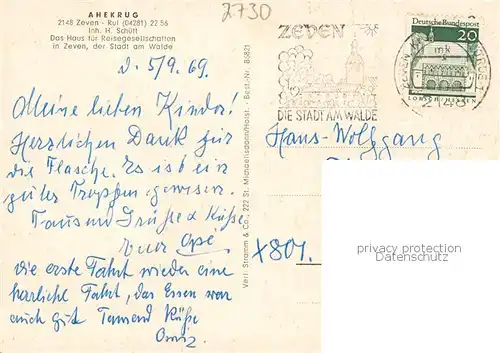 AHEKRUG
2148 Zeven - Ruf (04281) 22 56
Inh. H. Schütt
Das Haus für Reisegesellschaften
in Zeven, der Stadt am Walde
2730
d. 5/9. 69.
Meine lieben Kinder!
Herzlichen Dank für
die Flasche. Es ist ein
guter Tropfen gewesen.
Tausend Grüße & Küsse
Euer Opi
die erste Fahrt wieder eine
herrliche Fahrt, das Essen war
auch gut Tausend Küße
Omi
Verl. Stramm & Co., 222 St. Michaelisdonn/Holst. · Best.-Nr. B 5821
ZEVEN
DIE STADT AM WALDE
Deutsche Bundespost
20
LORSCH/HESSEN
2148
mk
Hans-Wolfgang
X804
privacy protection
Datenschutz